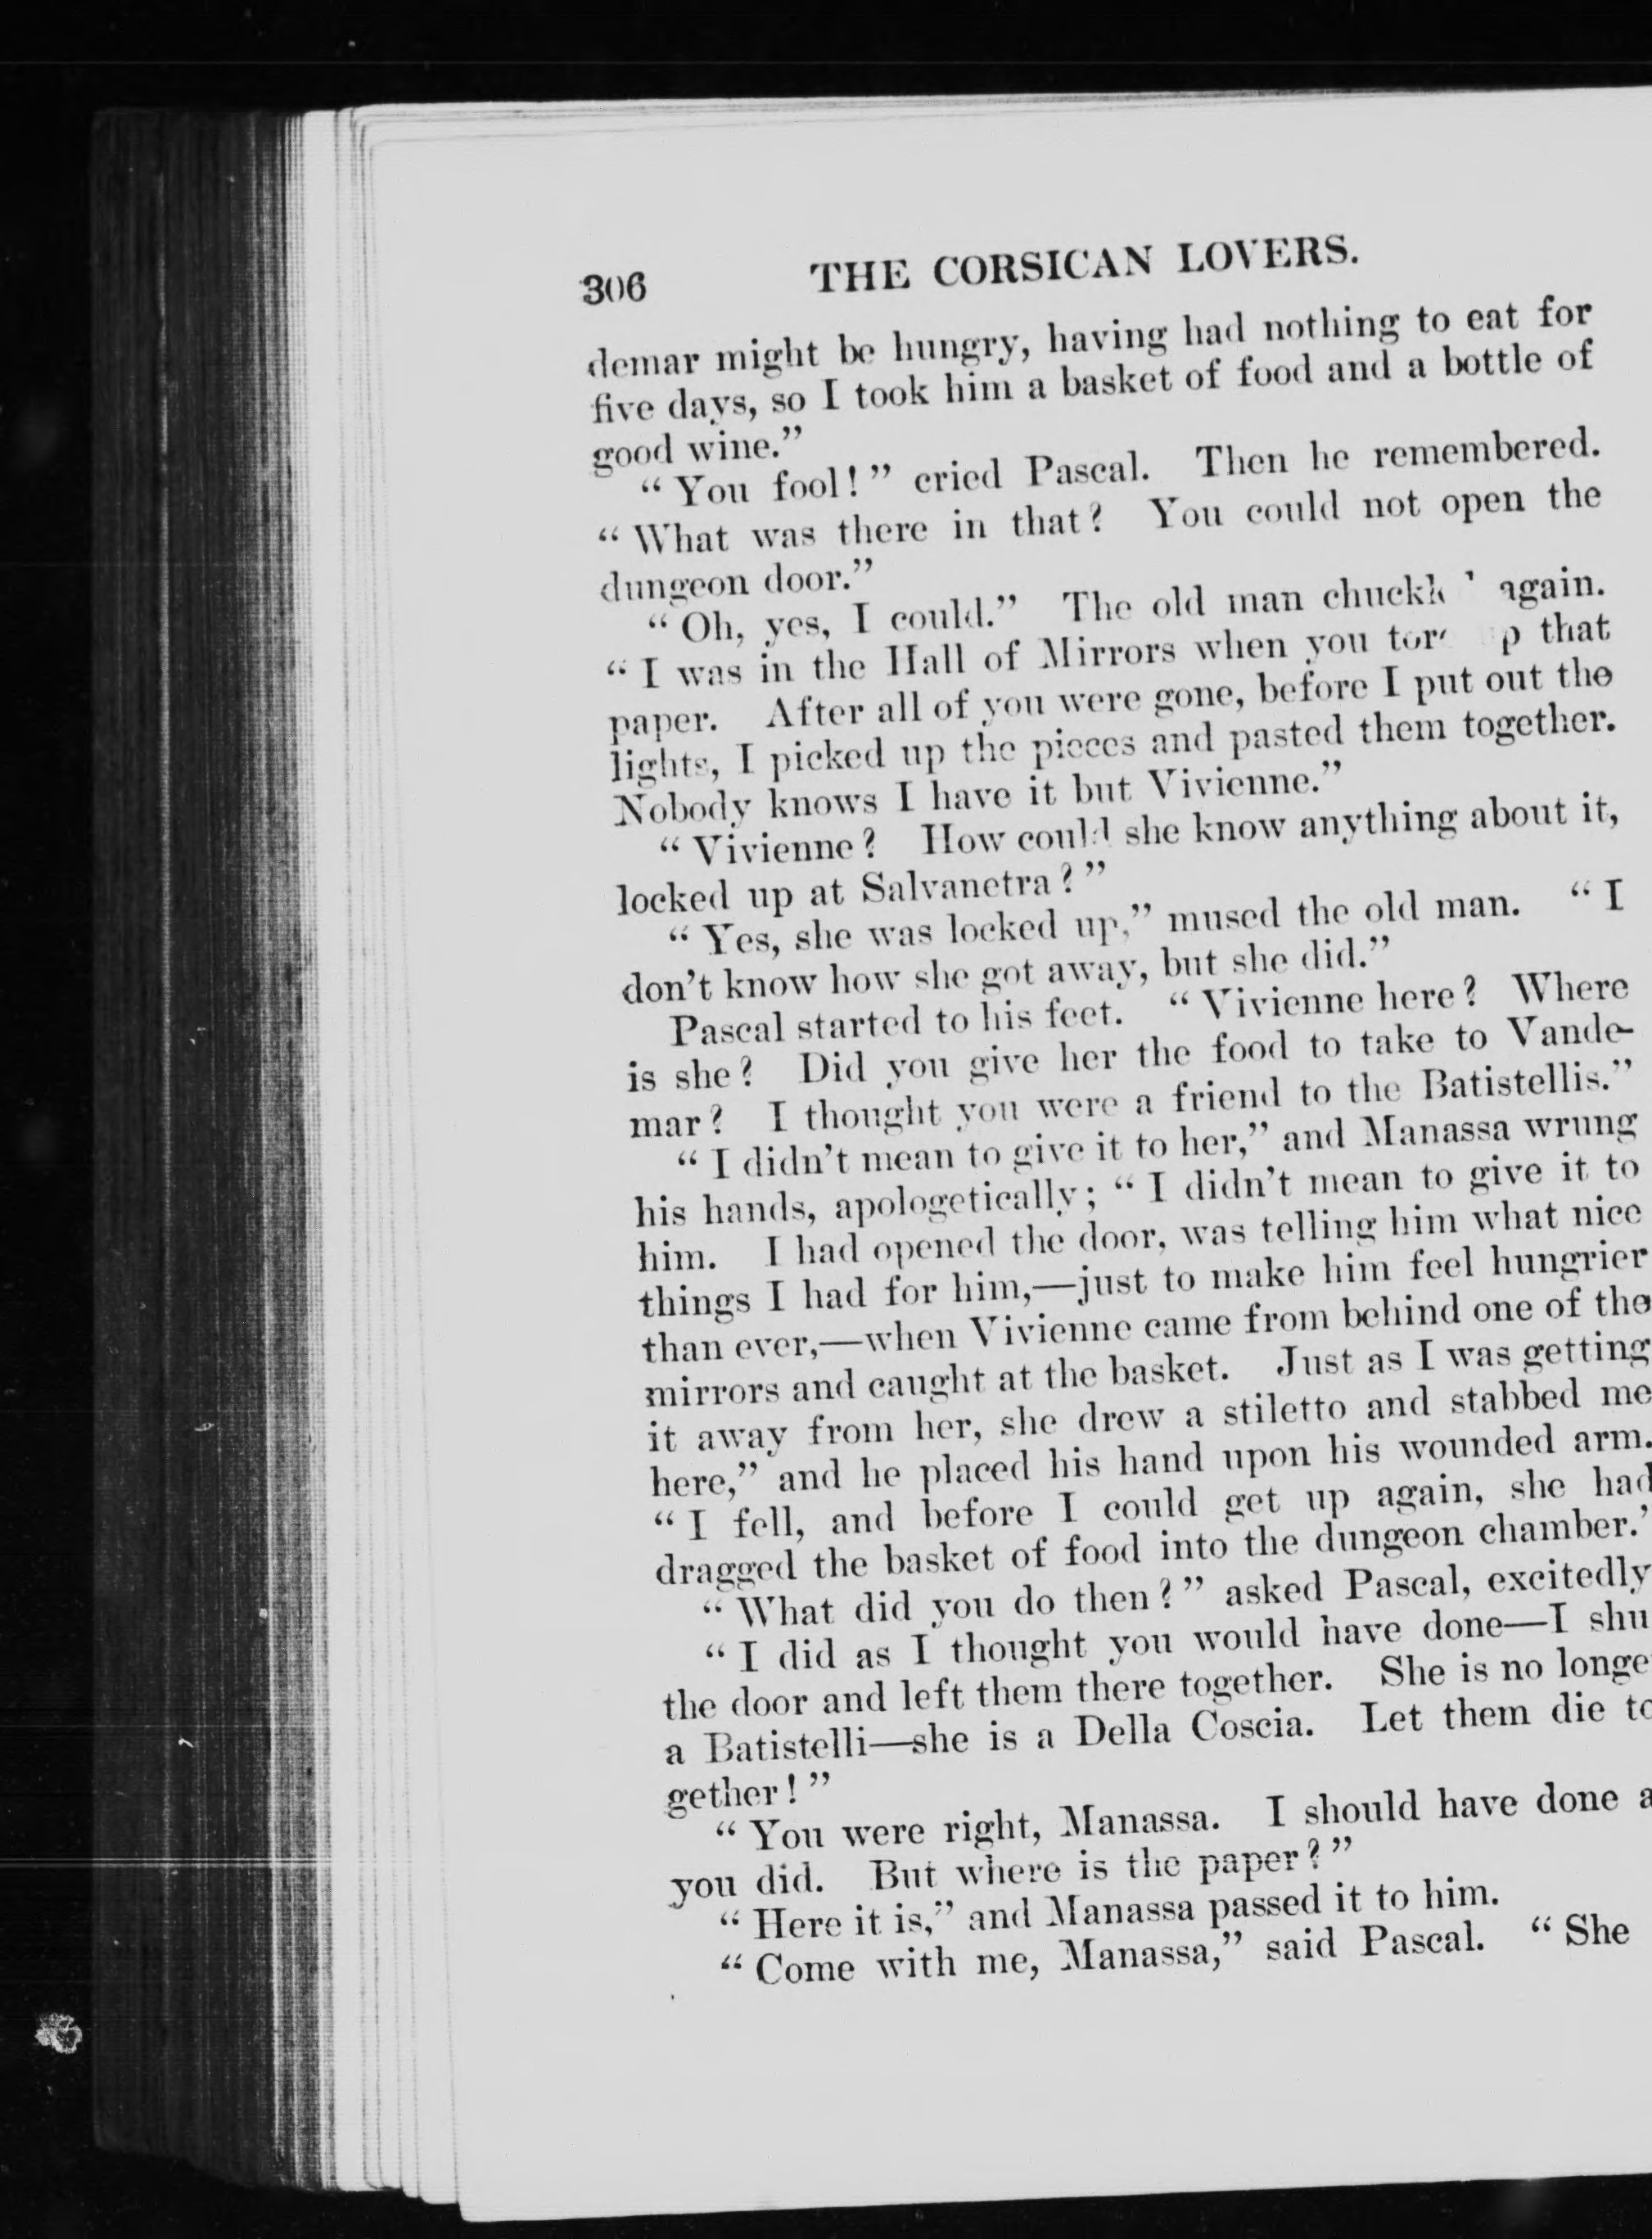 306 THE CORSICAN LOVERS.
demar might be hungry, having had nothing to eat for
five days, so I took him a basket of food and a bottle of
good wine.”
“You fool!” cried Pascal. Then he remembered.
“What was there in that? You could not open the
dungeon door.”
“Oh, yes, I could.” The old man again.
“I was in the Hall of Mirrors when you that
paper. After all of you were gone, before I put out the
lights, I picked up the pieces and pasted them together.
Nobody knows I have it but Vivienne.”
“Vivienne? How could she know anything about it,
locked up at Salvanetra?”
“Yes, she was locked up,” mused the old man. “I
don’t know how she got away, but she did.”
Pascal started to his feet. “Vivienne here? Where
is she? Did you give her the food to take to Vande-
mar? I thought you were a friend to the Batistellis.”
“I didn’t mean to give it to her,” and Manassa wrung
his hands, apologetically; “I didn’t mean to give it to
him. I had opened the door, was telling him what nice
things I had for him,—just to make him feel hungrier
than ever,—when Vivienne came from behind one of the
mirrors and caught at the basket. Just as I was getting
it away from her, she drew a stiletto and stabbed me
here,” and he placed his hand upon his wounded arm.
“I fell, and before I could get up again, she had
dragged the basket of food into the dungeon chamber.’
“What did you do then?” asked Pascal, excitedly
“I did as I thought you would have done—I shu
the door and left them there together. She is no longe
a Batistelli—she is a Della Coscia. Let them die to
gether!”
“You were right, Manassa. I should have done a
you did. But where is the paper?”
“Here it is,” and Manassa passed it to him.
“Come with me, Manassa,” said Pascal. “She